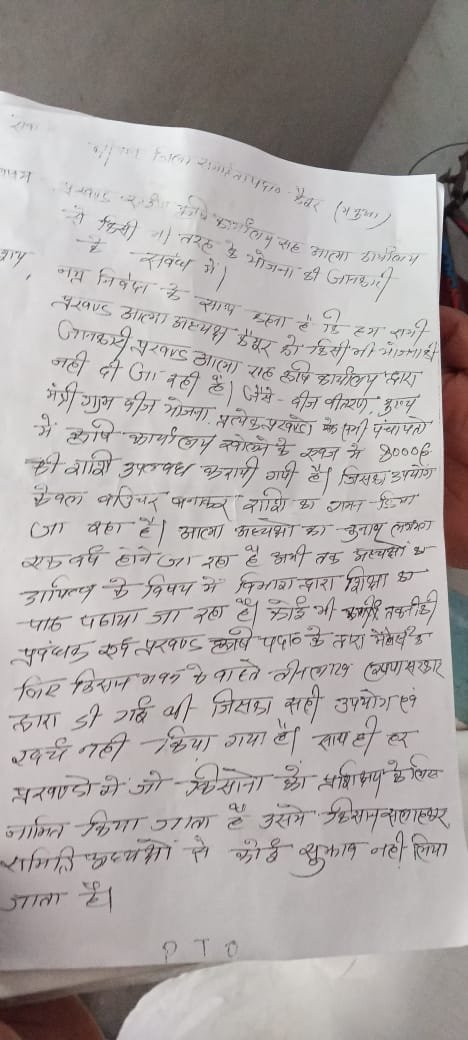 जिला समाहर्ता कैमूर (भभुआ)
प्रखण्ड कृषि कार्यालय सह आत्मा कार्यालय
से किसी भी तरह के योजना की जानकारी
के संबंध में।
नम्र निवेदन के साथ कहना है कि हम सभी
प्रखण्ड आत्मा अध्यक्ष कैमूर को किसी भी योजना की
जानकारी प्रखण्ड आत्मा सह कृषि कार्यालय द्वारा
नहीं दी जा रही है। जैसे - बीज वितरण, मुख्य
मंत्री ग्राम बीज योजना, प्रत्येक प्रखण्डों के सभी पंचायतो
में कृषि कार्यालय खोलने के रूप में
की राशि उपलब्ध करायी गयी है। जिसका उपयोग
केवल भाउचर बनाकर राशि का गमन किया
जा रहा है। आत्मा अध्यक्षो का चुनाव लगभग
एक वर्ष होने जा रहा है अभी तक अध्यक्षो के
दायित्व के विषय में विभाग द्वारा शिक्षा का
पाठ पढाया जा रहा है। कोई भी तकनीकी
प्रबंधक एवं प्रखण्ड कृषि पदा० के द्वारा के
लिए किसान भवन के वास्ते तीन लाख रूपया सरकार
द्वारा दी गई थी जिसका सही उपयोग एवं
खर्च नहीं किया गया है। साथ ही हर
प्रखण्डो में जो किसानो को प्रशिक्षण के लिए
नामित किया जाता है उसमे किसान सलाहकार
समिति अध्यक्षो से कोई सुझाव नहीं लिया
जाता है।
P T O